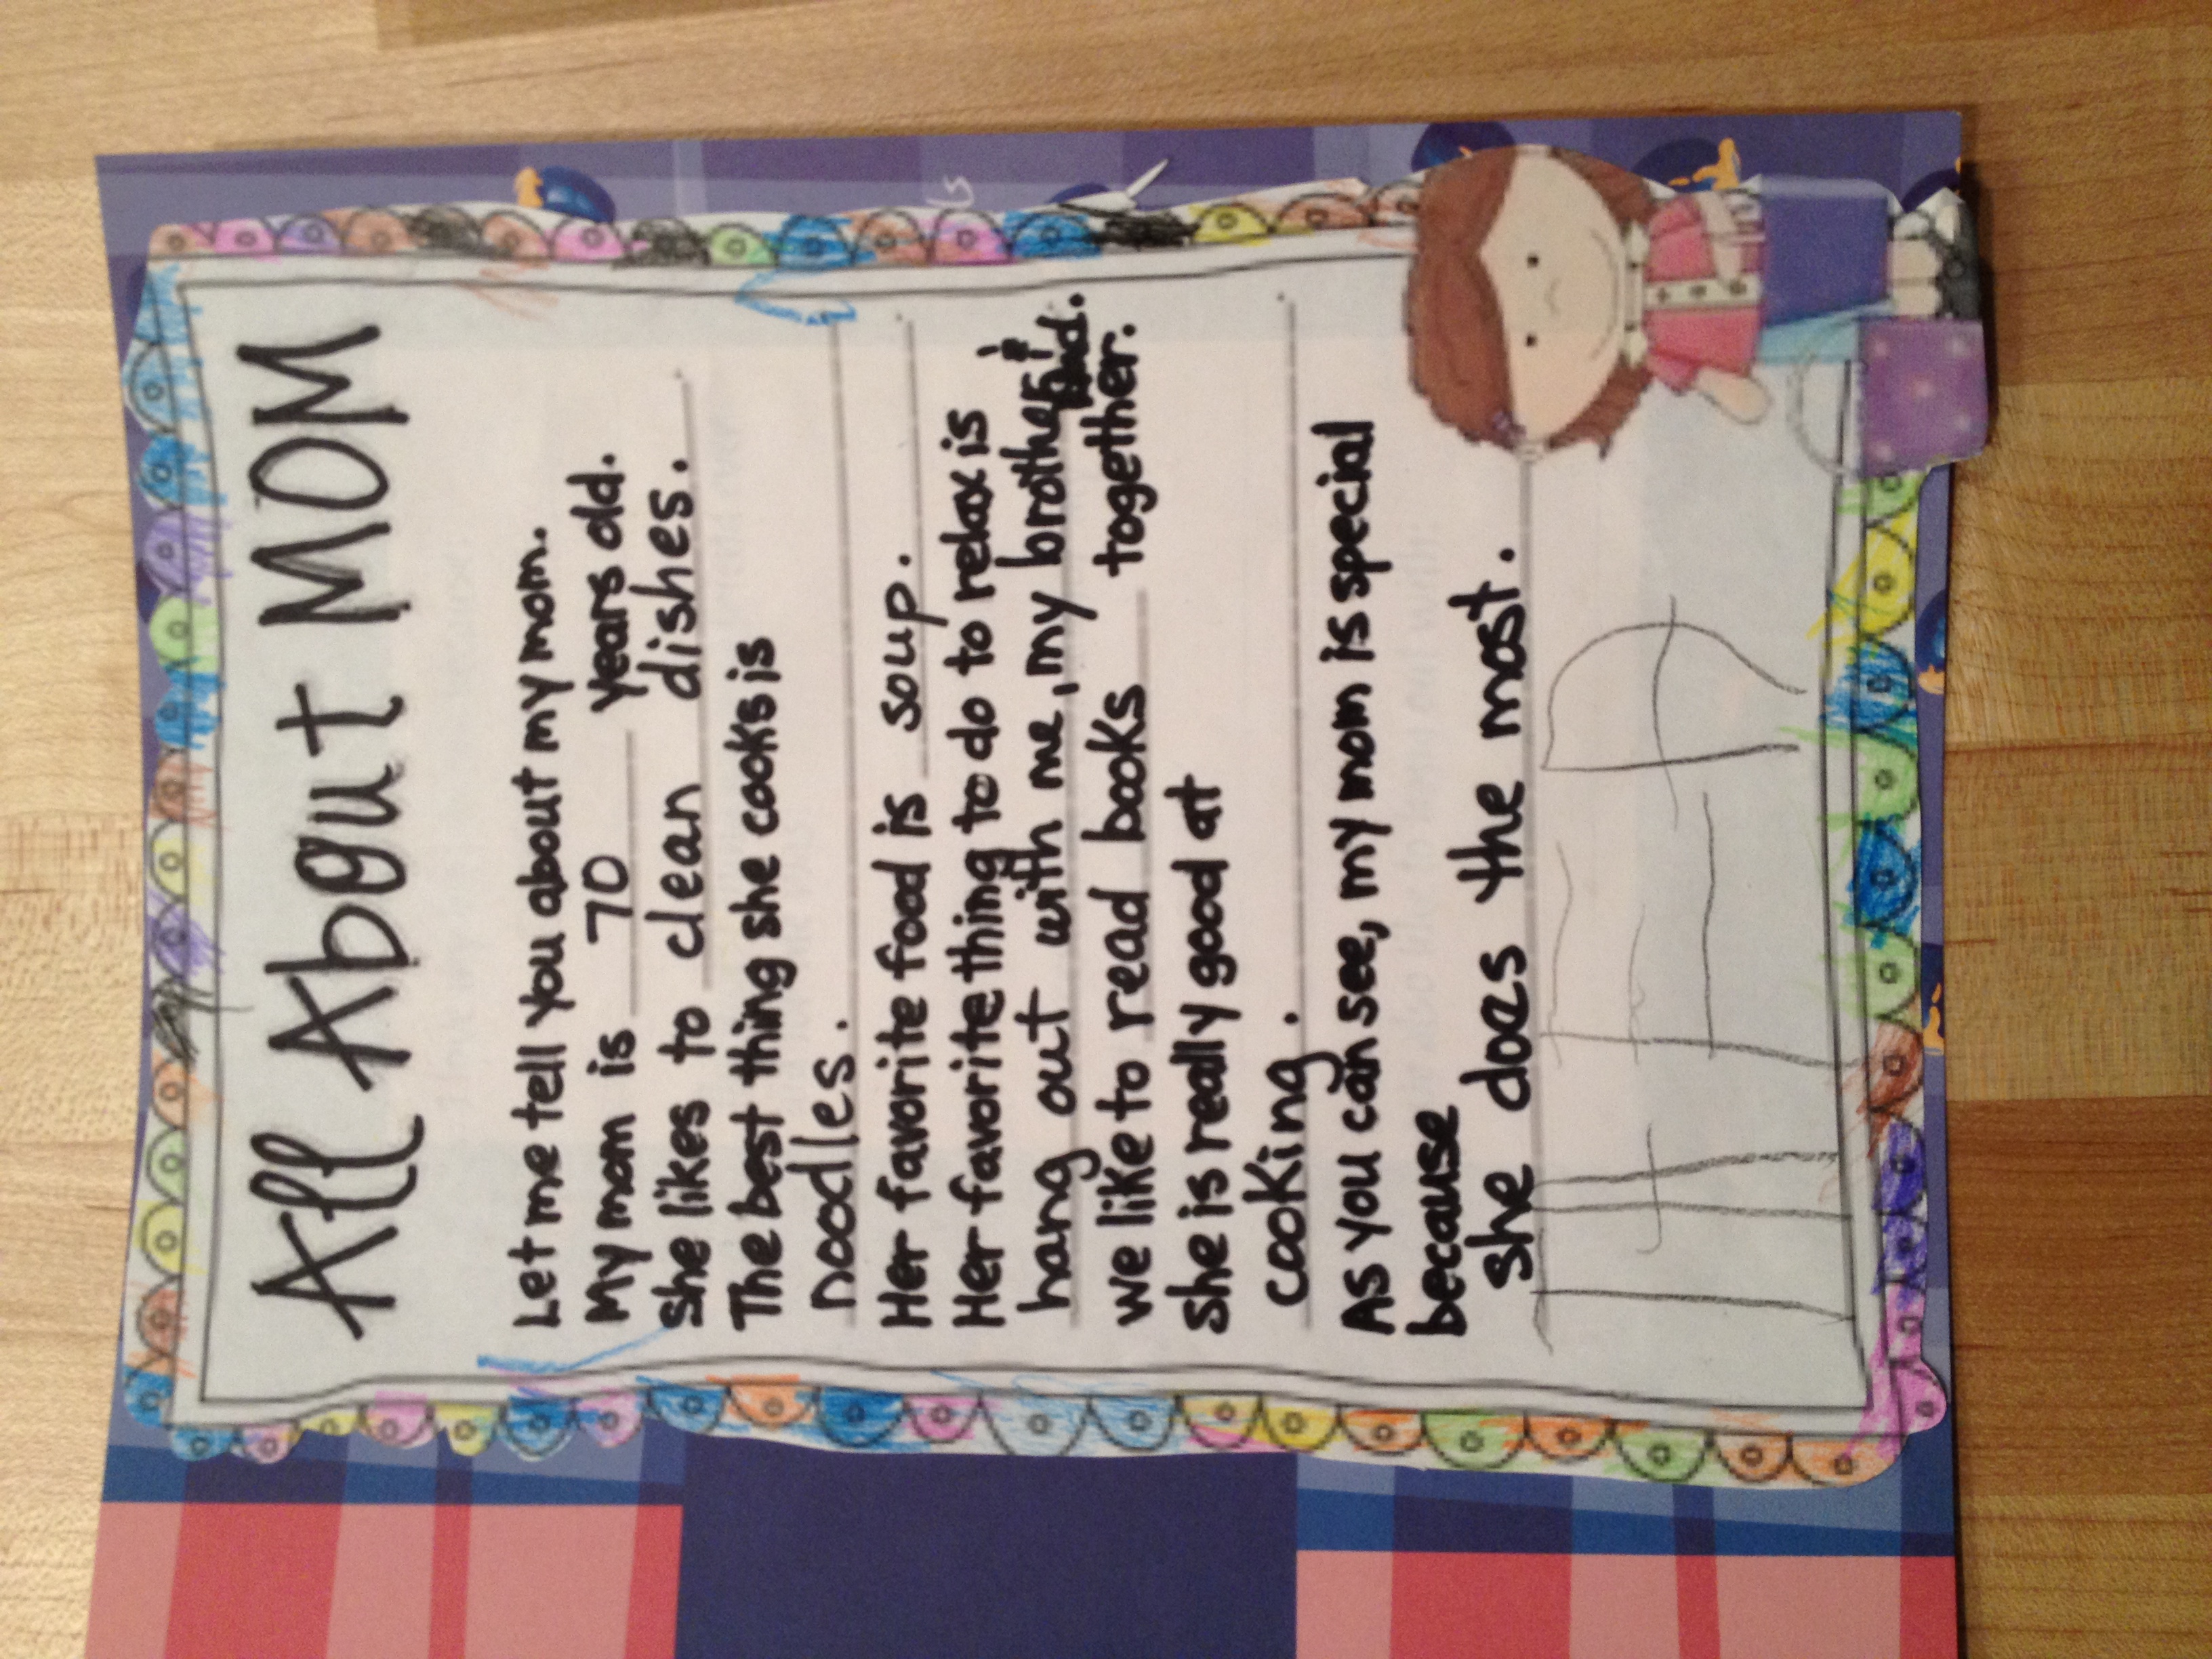 All About MOM
Let me tell you about my mom.
My mom is 70 years old.
She likes to clean dishes.
The best thing she cooks is
noodles.
Her favorite food is soup.
Her favorite thing to do to relax is
hang out with me, my brother & Dad.
we like to read books together.
She is really good at
cooking.
As you can see, my mom is special
because
she does the most.